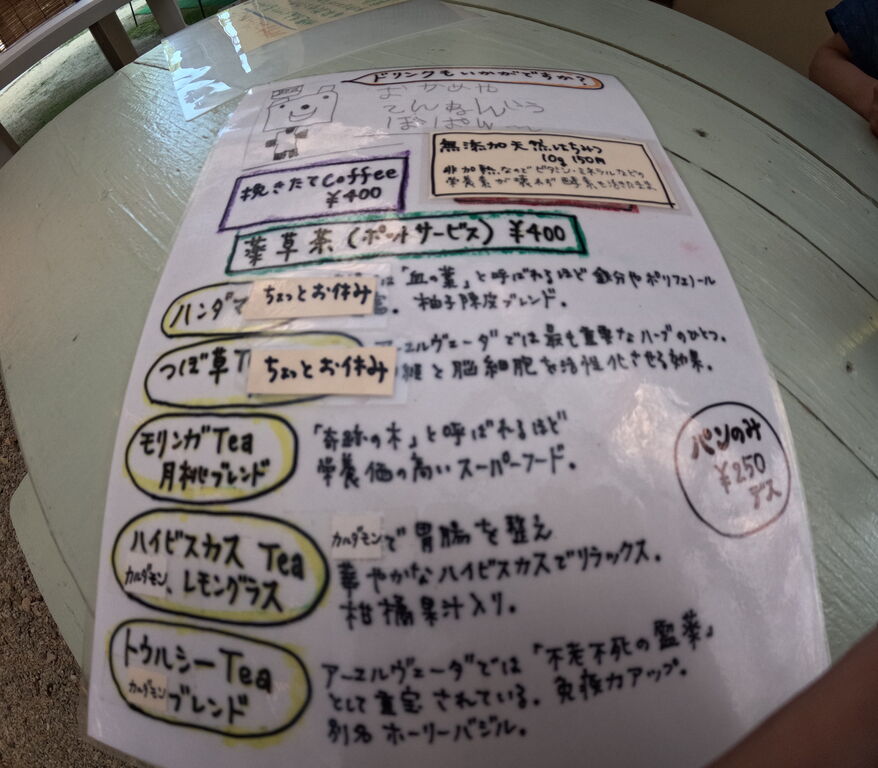 ドリンクもいかがですか?
おかめや
てんねんいろ
無添加天然はちみつ
10g 150円
非加熱なのでビタミン・ミネラルなどの
栄養素が壊れず酵素も活きたまま
挽きたてCoffee
¥400
薬草茶(ポットサービス)¥400
ハンダマ
ちょっとお休み
は「血の葉」と呼ばれるほど鉄分やポリフェノール
。柚子陳皮ブレンド。
つぼ草T
ちょっとお休み
アーユルヴェーダでは最も重要なハーブのひとつ。
と脳細胞を活性化させる効果。
モリンガTea
月桃ブレンド
「奇跡の木」と呼ばれるほど
栄養価の高いスーパーフード。
パンのみ
¥250
デス
ハイビスカス Tea
カルダモン、レモングラス
カルダモンで胃腸を整え
華やかなハイビスカスでリラックス。
柑橘果汁入り。
トゥルシーTea
カルダモンブレンド
アーユルヴェーダでは「不老不死の霊薬」
として重宝されている。免疫力アップ。
別名 ホーリーバジル。